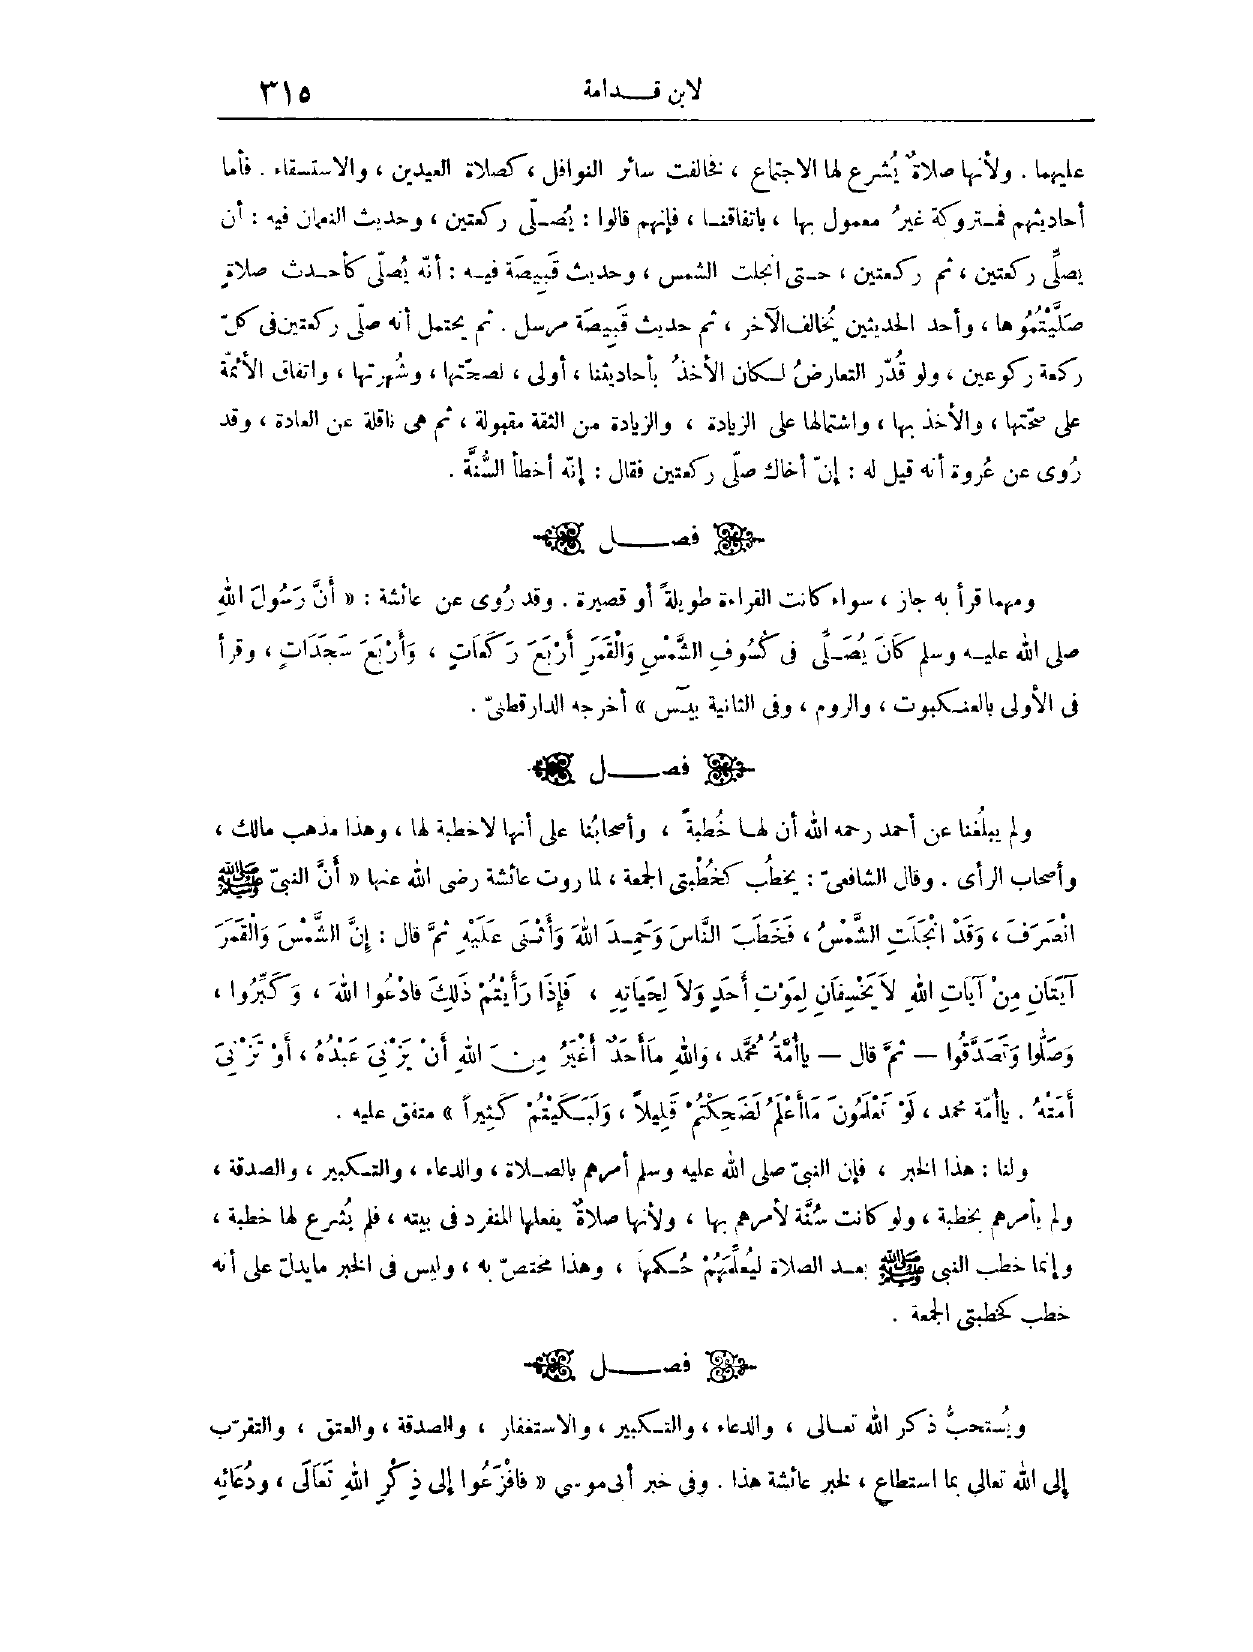 لابن قدامة ٣١٥
عليهما . ولأنها صلاةٌ يُشرع لها الاجتماع ، فخالفت سائر النوافل ، كصلاة العيدين ، والاستسقاء . فأما
أحاديثهم فمتروكة غيرُ معمول بها ، باتفاقنا ، فإنهم قالوا : يُصلّى ركعتين ، وحديث النعمان فيه : أن
يصلِّى ركعتين ، ثم ركعتين ، حتى انجلت الشمس ، وحديث قَبِيصَة فيه : أنّه يُصلّى كأحدث صلاةٍ
صَلَّيْتُمُوها ، وأحد الحديثين يُخالف الآخر ، ثم حديث قَبِيصَة مرسل . ثم يحتمل أنه صلّى ركعتين فى كلّ
ركعة ركوعين ، ولو قُدّر التعارضُ لكان الأخذُ بأحاديثنا ، أولى ، لصحّتها ، وشُهرتها ، واتفاق الأئمّة
على صحّتها ، والأخذ بها ، واشتمالها على الزيادة ، والزيادة من الثقة مقبولة ، ثم هى ناقلة عن العادة ، وقد
رُوى عن عُروة أنه قيل له : إنّ أخاك صلّى ركعتين فقال : إنّه أخطأ السُّنَّة .
فصل
ومهما قرأ به جاز ، سواء كانت القراءة طويلةً أو قصيرة . وقد رُوى عن عائشة : « أَنَّ رَسُولَ اللهِ
صلى الله عليه وسلم كَانَ يُصَلِّى فى كُسُوفِ الشَّمْسِ وَالْقَمَرِ أَرْبَعَ رَكَعَاتٍ ، وَأَرْبَعَ سَجَدَاتٍ ، وقرأ
فى الأولى بالعنكبوت ، والروم ، وفى الثانية بيسَ » أخرجه الدارقطنىّ .
فصل
ولم يبلغُنا عن أحمد رحمه الله أن لها خُطبةً ، وأصحابُنا على أنها لاخطبة لها ، وهذا مذهب مالك ،
وأصحاب الرأى . وقال الشافعىّ : يخطُب كخُطْبتى الجمعة ، لما روت عائشة رضى الله عنها « أَنَّ النبىّ ﷺ
انْصَرَفَ ، وَقَدْ انْجَلَتِ الشَّمْسُ ، فَخَطَبَ النَّاسَ وَحَمِدَ اللهَ وَأَثْنَى عَلَيْهِ ثمَّ قال : إنَّ الشَّمْسَ وَالْقَمَرَ
آيَتَانِ مِنْ آيَاتِ اللهِ لاَ يَخْسِفَانِ لِمَوْتِ أَحَدٍ وَلاَ لِحَيَاتِهِ ، فَإِذَا رَأَيْتُمْ ذَلِكَ فَادْعُوا اللهَ ، وَكَبِّرُوا ،
وَصَلُّوا وَتَصَدَّقُوا — ثمَّ قال — ياأُمَّةُ مُحَمَّد ، وَاللهِ مَاأَحَدٌ أَغْيَرُ مِنَ اللهِ أَنْ يَزْنِىَ عَبْدُهُ ، أَوْ تَزْنِىَ
أَمَتُهُ . ياأُمّة محمد ، لَوْ تَعْلَمُونَ مَاأَعْلَمُ لَضَحِكْتُمْ قَلِيلاً ، وَلَبَكَيْتُمْ كَثِيراً » متفق عليه .
ولنا : هذا الخبر ، فإن النبىّ صلى الله عليه وسلم أمرهم بالصلاة ، والدعاء ، والتكبير ، والصدقة ،
ولم يأمرهم بخطبة ، ولو كانت سُنَّة لأمرهم بها ، ولأنها صلاةٌ يفعلها المنفرد فى بيته ، فلم يُشرع لها خطبة ،
وإنما خطب النبى ﷺ بعد الصلاة ليُعلِّمَهُمْ حُكمها ، وهذا مختصّ به ، وليس فى الخبر مايدلّ على أنه
خطب كخطبتى الجمعة .
فصل
ويُستحبُّ ذكر الله تعالى ، والدعاء ، والتكبير ، والاستغفار ، والصدقة ، والعتق ، والتقرّب
إلى الله تعالى بما استطاع ، لخبر عائشة هذا . وفي خبر أبى موسي « فافْزَعُوا إلى ذِكْرِ اللهِ تَعَالَى ، ودُعَائِهِ